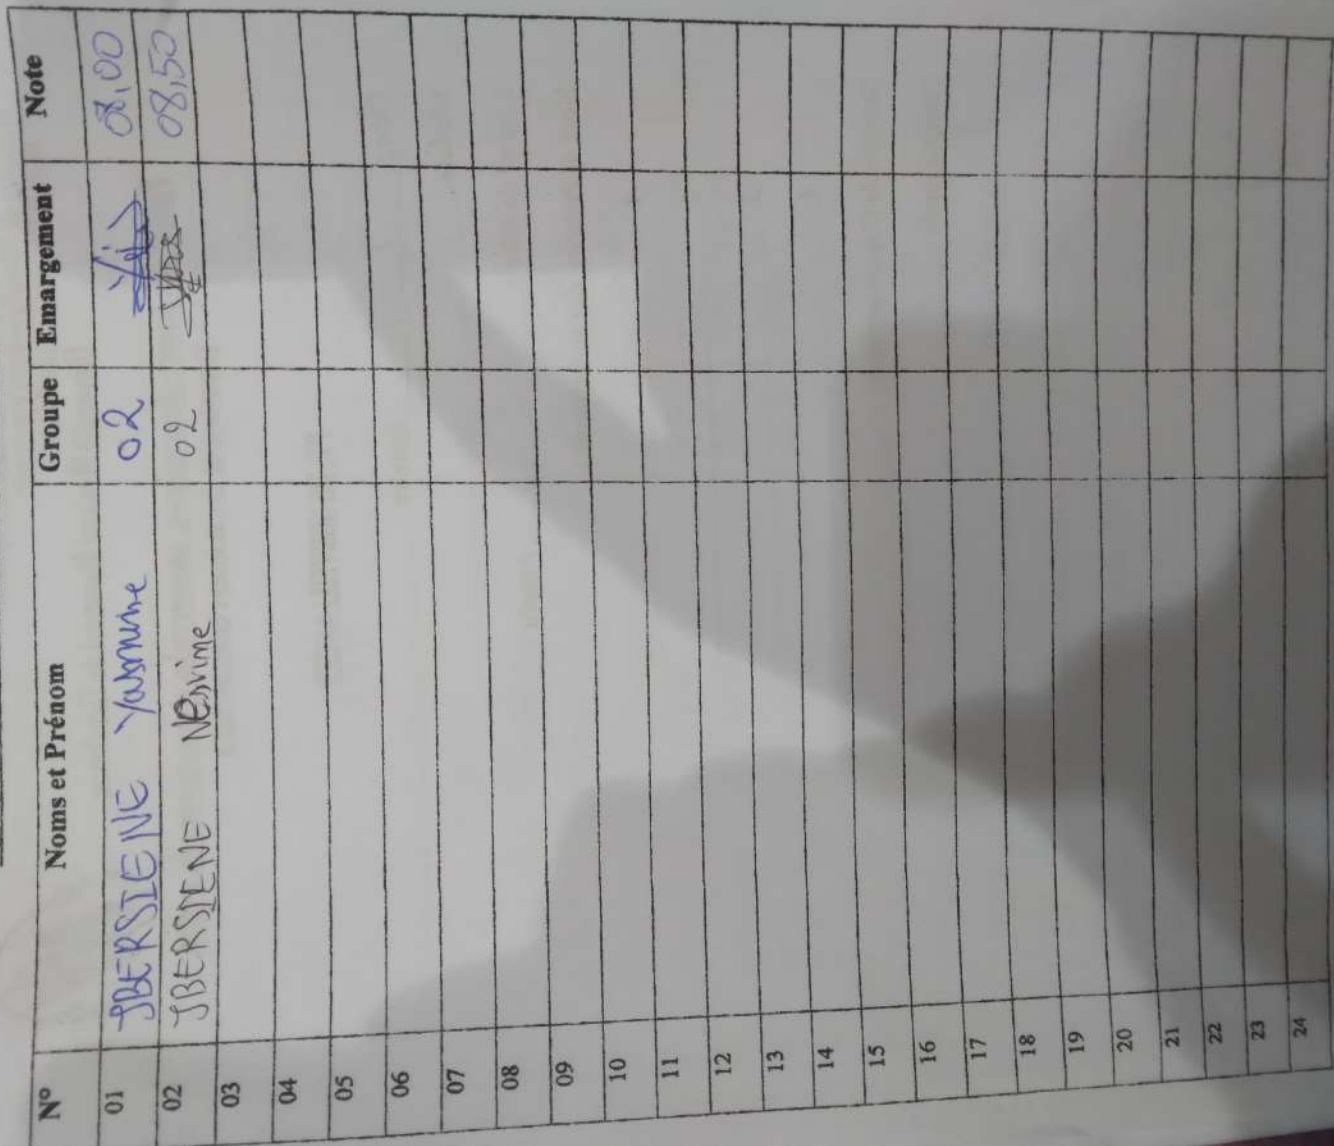 N° Noms et Prénom Groupe Emargement Note
01 IBERSIENE Yasmine 02 08,00
02 IBERSIENE Nesrine 02 08,50
03
04
05
06
07
08
09
10
11
12
13
14
15
16
17
18
19
20
21
22
23
24